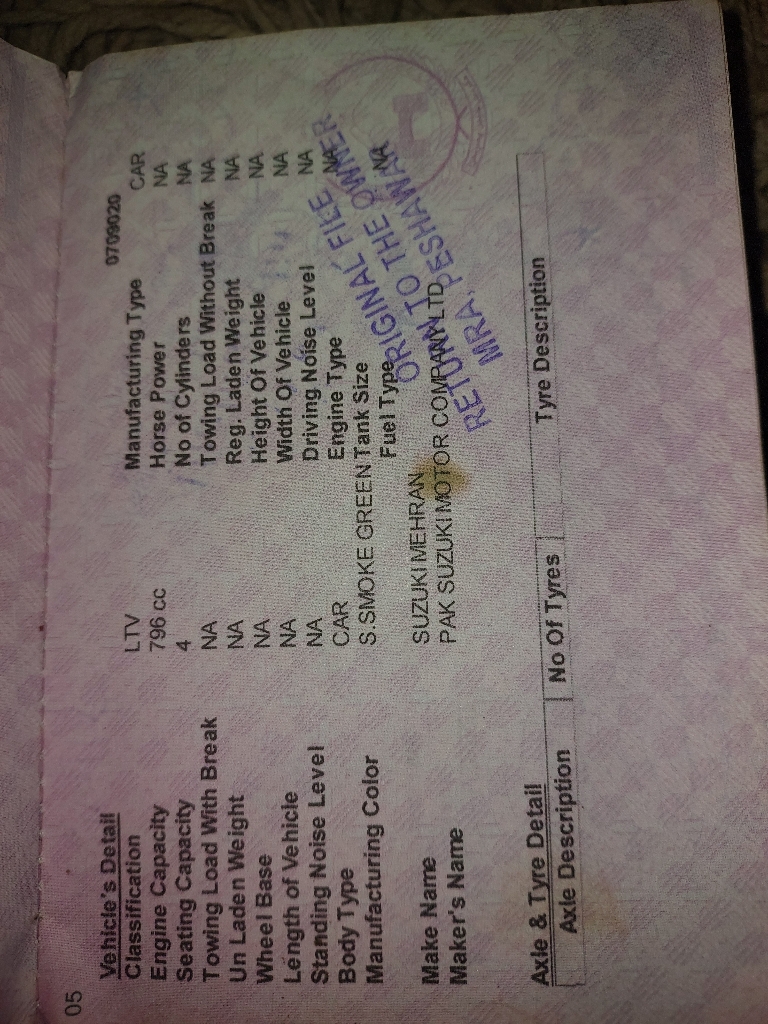 05
0709020
Vehicle's Detail
Classification LTV Manufacturing Type CAR
Engine Capacity 796 cc Horse Power NA
Seating Capacity 4 No of Cylinders NA
Towing Load With Break NA Towing Load Without Break NA
Un Laden Weight NA Reg. Laden Weight NA
Wheel Base NA Height Of Vehicle NA
Length of Vehicle NA Width Of Vehicle NA
Standing Noise Level NA Driving Noise Level NA
Body Type CAR Engine Type NA
Manufacturing Color S.SMOKE GREEN Tank Size
Fuel Type NA
Make Name SUZUKI MEHRAN
Maker's Name PAK SUZUKI MOTOR COMPANY LTD
ORIGINAL FILE
RETURN TO THE OWNER
MRA, PESHAWAR
Axle & Tyre Detail
Axle Description No Of Tyres Tyre Description